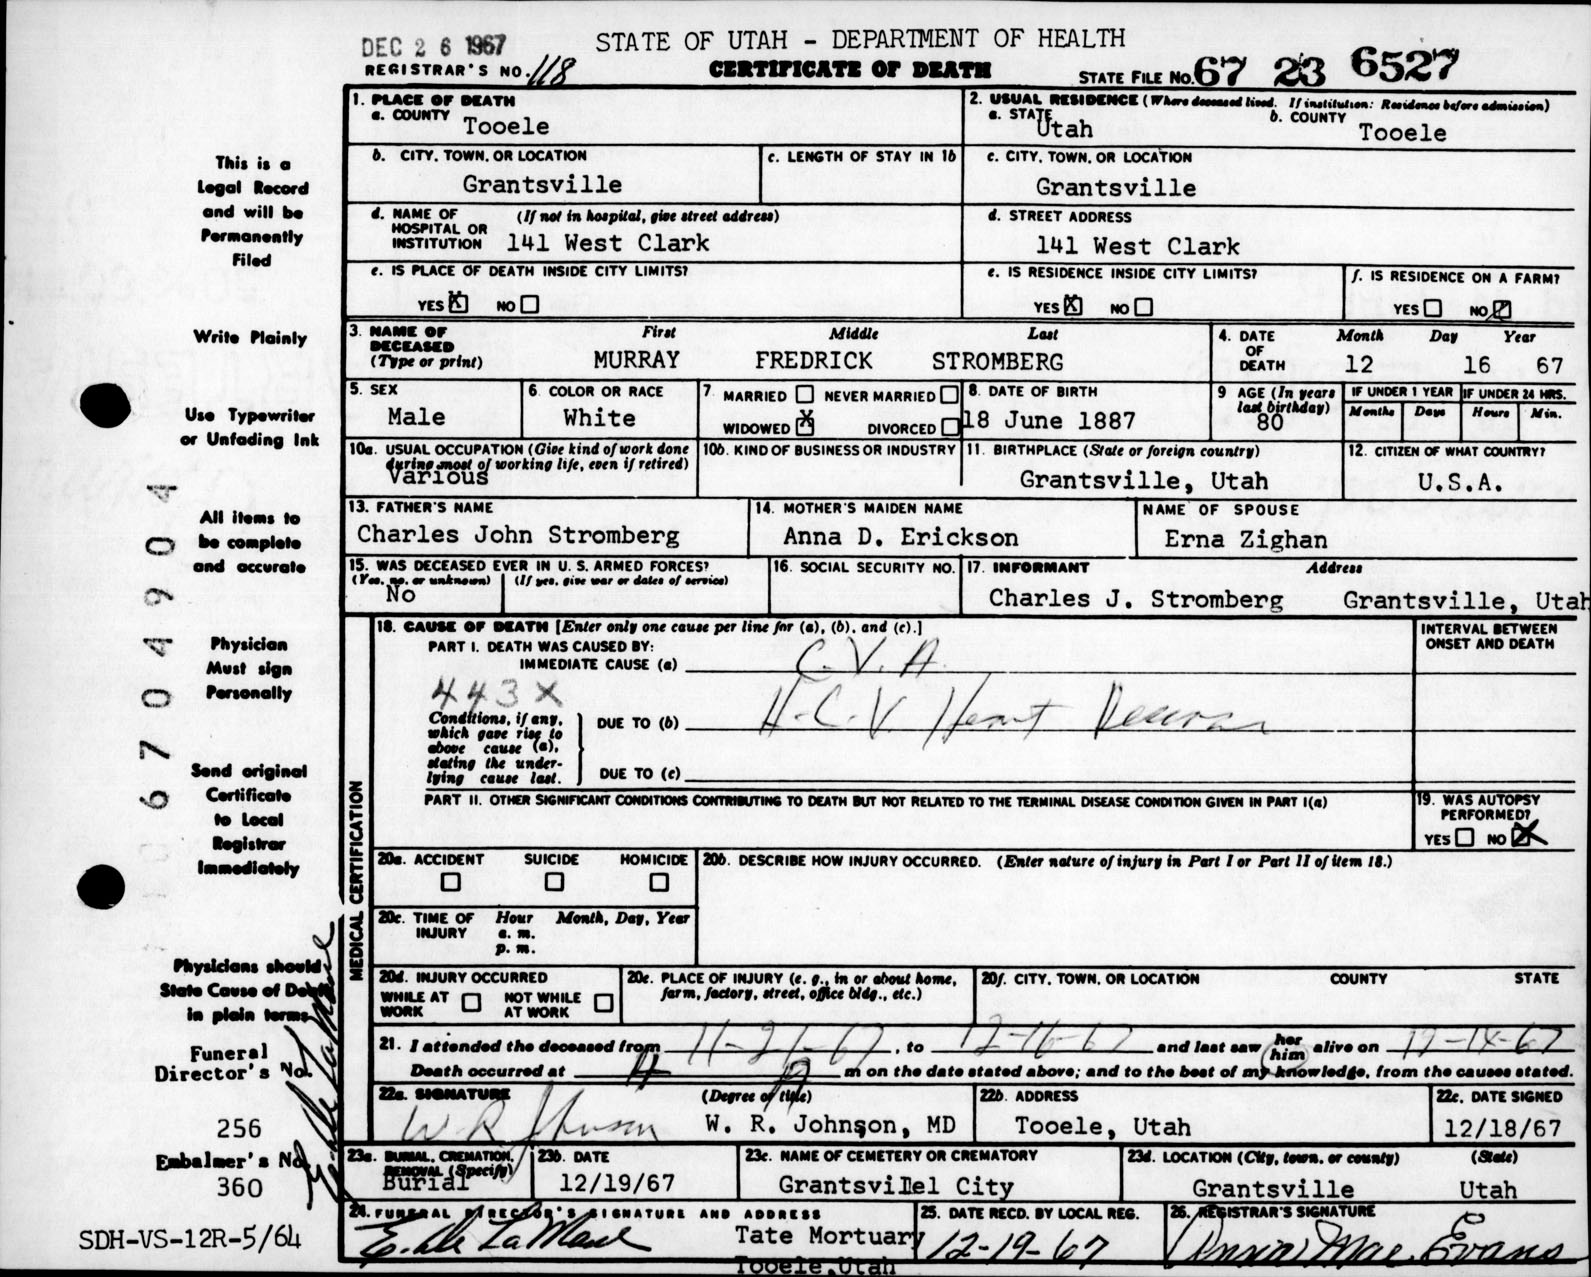 DEC 26 1967
STATE OF UTAH - DEPARTMENT OF HEALTH
REGISTRAR'S NO. 118
CERTIFICATE OF DEATH
STATE FILE NO. 67 23 6527
This is a
Legal Record
and will be
Permanently
Filed
Write Plainly
Use Typewriter
or Unfading Ink
All items to
be complete
and accurate
Physician
Must sign
Personally
Send original
Certificate
to Local
Registrar
Immediately
Physicians should
State Cause of Death
in plain terms
Funeral
Director's No.
256
Embalmer's No.
360
SDH-VS-12R-5/64
67 04904
1. PLACE OF DEATH
a. COUNTY Tooele
2. USUAL RESIDENCE (Where deceased lived. If institution: Residence before admission)
a. STATE Utah b. COUNTY Tooele
b. CITY, TOWN, OR LOCATION
Grantsville
c. LENGTH OF STAY IN 1b
c. CITY, TOWN, OR LOCATION
Grantsville
d. NAME OF HOSPITAL OR INSTITUTION (If not in hospital, give street address)
141 West Clark
d. STREET ADDRESS
141 West Clark
e. IS PLACE OF DEATH INSIDE CITY LIMITS?
YES X NO
e. IS RESIDENCE INSIDE CITY LIMITS?
YES X NO
f. IS RESIDENCE ON A FARM?
YES NO
3. NAME OF DECEASED (Type or print) First Middle Last
MURRAY FREDRICK STROMBERG
4. DATE OF DEATH Month Day Year
12 16 67
5. SEX
Male
6. COLOR OR RACE
White
7. MARRIED NEVER MARRIED
WIDOWED X DIVORCED
8. DATE OF BIRTH
18 June 1887
9. AGE (In years last birthday)
80
IF UNDER 1 YEAR IF UNDER 24 HRS.
Months Days Hours Min.
10a. USUAL OCCUPATION (Give kind of work done
during most of working life, even if retired)
Various
10b. KIND OF BUSINESS OR INDUSTRY
11. BIRTHPLACE (State or foreign country)
Grantsville, Utah
12. CITIZEN OF WHAT COUNTRY?
U.S.A.
13. FATHER'S NAME
Charles John Stromberg
14. MOTHER'S MAIDEN NAME
Anna D. Erickson
NAME OF SPOUSE
Erna Zighan
15. WAS DECEASED EVER IN U. S. ARMED FORCES?
(Yes, no, or unknown) (If yes, give war or dates of service)
No
16. SOCIAL SECURITY NO.
17. INFORMANT Address
Charles J. Stromberg Grantsville, Utah
MEDICAL CERTIFICATION
18. CAUSE OF DEATH [Enter only one cause per line for (a), (b), and (c).]
INTERVAL BETWEEN
ONSET AND DEATH
PART I. DEATH WAS CAUSED BY:
IMMEDIATE CAUSE (a) C.V.A.
443X
Conditions, if any,
which gave rise to
above cause (a),
stating the under-
lying cause last.
DUE TO (b) H.C.V. Heart Disease
DUE TO (c)
PART II. OTHER SIGNIFICANT CONDITIONS CONTRIBUTING TO DEATH BUT NOT RELATED TO THE TERMINAL DISEASE CONDITION GIVEN IN PART I(a)
19. WAS AUTOPSY
PERFORMED?
YES NO X
20a. ACCIDENT SUICIDE HOMICIDE
20b. DESCRIBE HOW INJURY OCCURRED. (Enter nature of injury in Part I or Part II of item 18.)
20c. TIME OF INJURY Hour Month, Day, Year
a. m.
p. m.
20d. INJURY OCCURRED
WHILE AT WORK NOT WHILE AT WORK
20e. PLACE OF INJURY (e. g., in or about home,
farm, factory, street, office bldg., etc.)
20f. CITY, TOWN, OR LOCATION COUNTY STATE
21. I attended the deceased from 11-21-67, to 12-16-67 and last saw her him alive on 12-14-67
Death occurred at m on the date stated above; and to the best of my knowledge, from the causes stated.
22a. SIGNATURE (Degree or title)
W R Johnson W. R. Johnson, MD
22b. ADDRESS
Tooele, Utah
22c. DATE SIGNED
12/18/67
23a. BURIAL, CREMATION,
REMOVAL (Specify)
Burial
23b. DATE
12/19/67
23c. NAME OF CEMETERY OR CREMATORY
Grantsvillel City
23d. LOCATION (City, town, or county) (State)
Grantsville Utah
24. FUNERAL DIRECTOR'S SIGNATURE AND ADDRESS
Tate Mortuary
Tooele, Utah
25. DATE RECD. BY LOCAL REG.
12-19-67
26. REGISTRAR'S SIGNATURE
Mae Evans